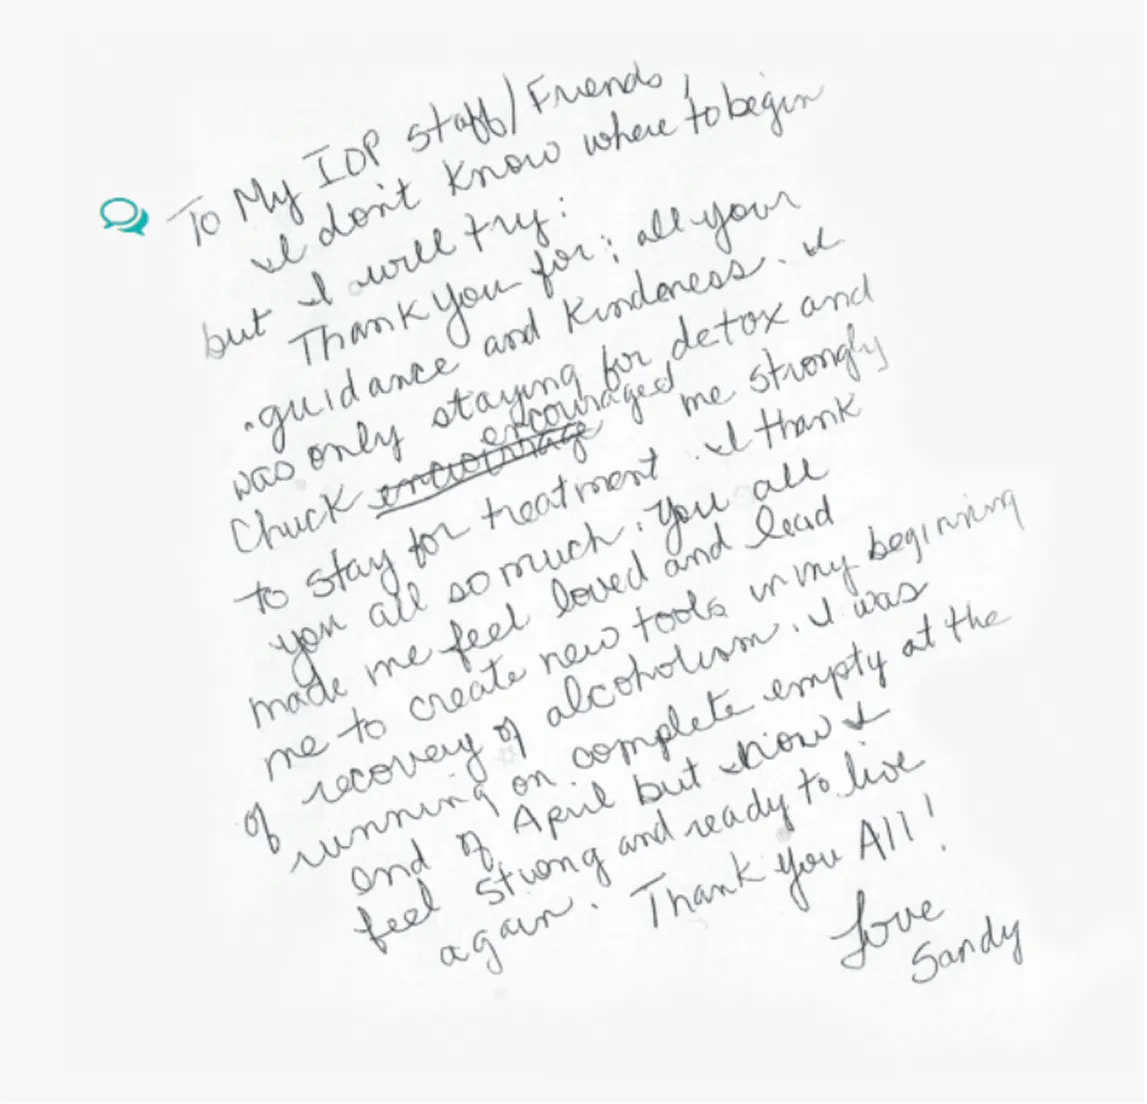 To My IOP Staff/Friends,
I don't know where to begin
but I will try:
Thank you for; all your
guidance and kindness. I
was only staying for detox and
encouraged
Chuck me strongly
to stay for treatment. I thank
you all so much. You all
made me feel loved and lead
me to create new tools in my beginning
of recovery of alcoholism. I was
running on complete empty at the
end of April but now I
feel strong and ready to live
again. Thank you All!
Love
Sandy